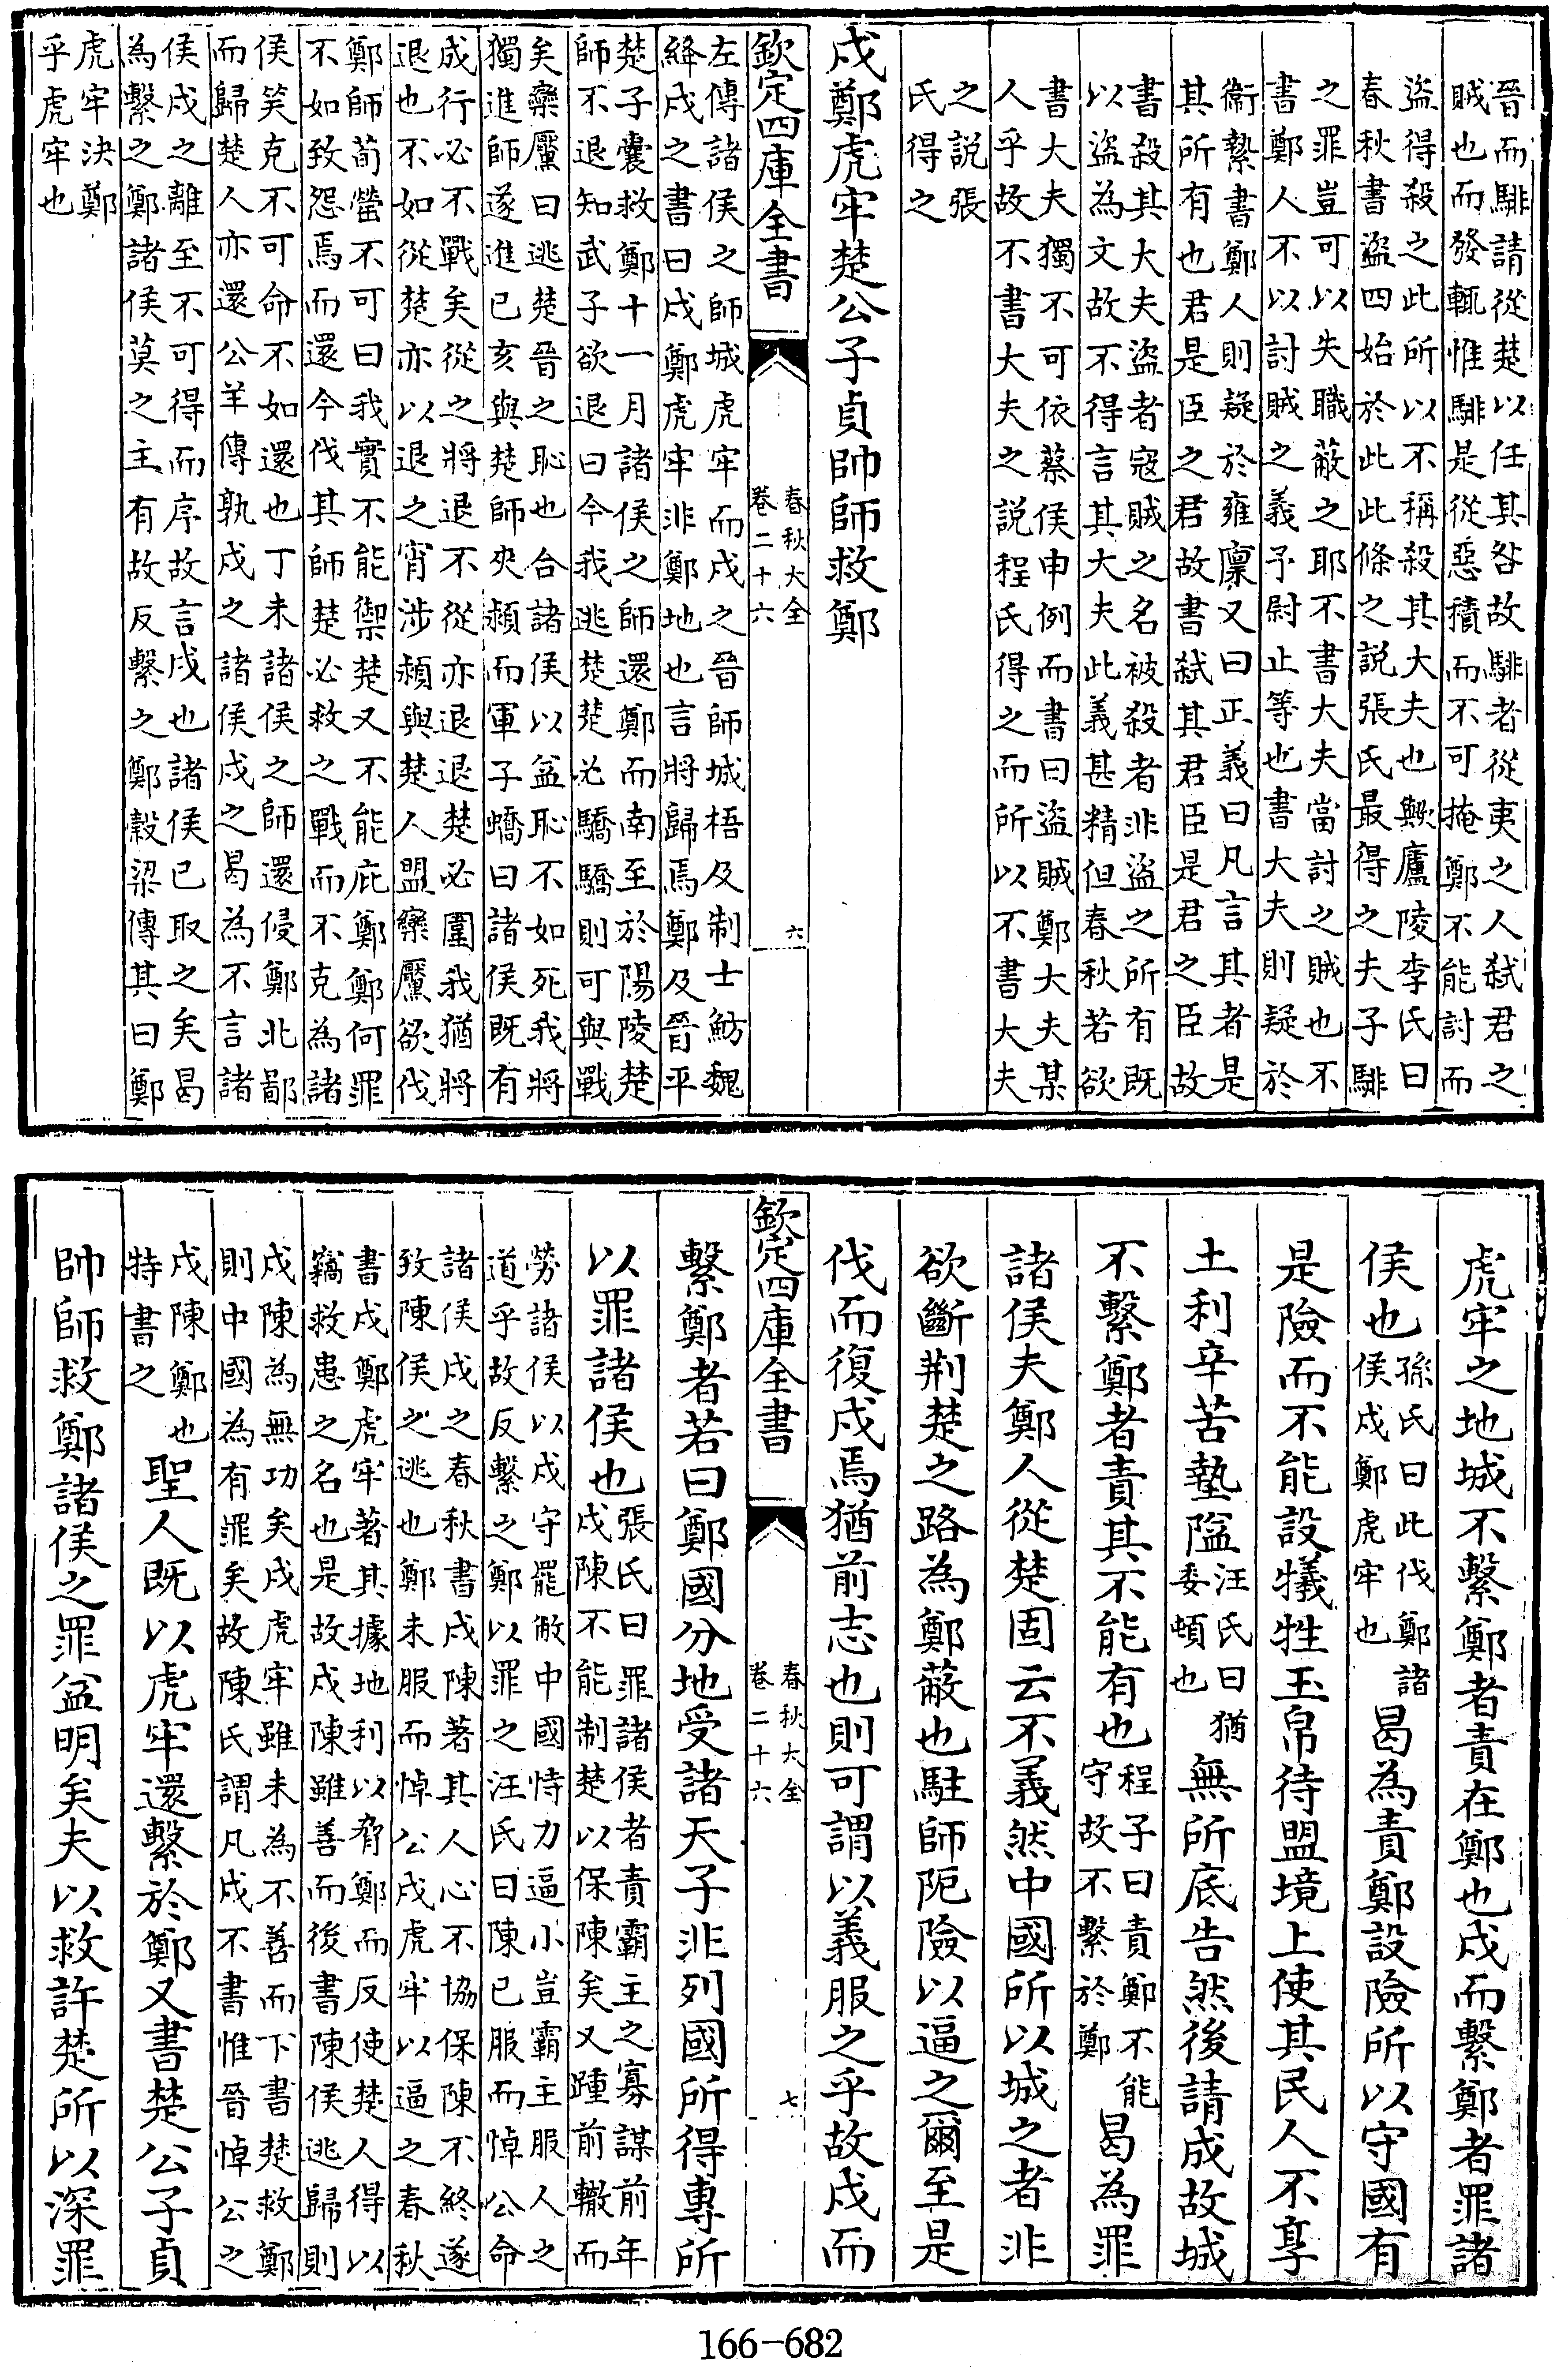 晉而騑請從楚以任其咎故騑者從夷之人弒君之
賊也而發輒惟騑是從惡積而不可掩鄭不能討而
盜得殺之此所以不稱殺其大夫也歟廬陵李氏曰
春秋書盜四始於此此條之說張氏最得之夫子騑
之罪豈可以失職蔽之耶不書大夫當討之賊也不
書鄭人不以討賊之義予尉止等也書大夫則疑於
衞縶書鄭人則疑於雍廪又曰正義曰凡言其者是
其所有也君是臣之君故書弒其君臣是君之臣故
書殺其大夫盜者寇賊之名被殺者非盜之所有既
以盜為文故不得言其大夫此義甚精但春秋若欲
書大夫獨不可依蔡侯申例而書曰盜賊鄭大夫某
人乎故不書大夫之說程氏得之而所以不書大夫
之說張
氏得之
戍鄭虎牢楚公子貞帥師救鄭
欽定四庫全書
春秋大全
卷二十六
六
左傳諸侯之師城虎牢而戍之晉師城梧及制士魴魏
絳戍之書曰戍鄭虎牢非鄭地也言將歸焉鄭及晉平
楚子囊救鄭十一月諸侯之師還鄭而南至於陽陵楚
師不退知武子欲退曰今我逃楚楚必驕驕則可與戰
矣欒黶曰逃楚晉之恥也合諸侯以益恥不如死我將
獨進師遂進已亥與楚師夾潁而軍子蟜曰諸侯既有
成行必不戰矣從之將退不從亦退退楚必圍我猶將
退也不如從楚亦以退之宵涉潁與楚人盟欒黶欲伐
鄭師荀罃不可曰我實不能禦楚又不能庇鄭鄭何罪
不如致怨焉而還今伐其師楚必救之戰而不克為諸
侯笑克不可命不如還也丁未諸侯之師還侵鄭北鄙
而歸楚人亦還公羊傳孰戍之諸侯戍之曷為不言諸
侯戍之離至不可得而序故言戍也諸侯已取之矣曷
為繫之鄭諸侯莫之主有故反繫之鄭穀梁傳其曰鄭
虎牢決鄭
乎虎牢也
虎牢之地城不繫鄭者責在鄭也戍而繫鄭者罪諸
侯也孫氏曰此伐鄭諸侯戍鄭虎牢也曷為責鄭設險所以守國有
是險而不能設犧牲玉帛待盟境上使其民人不享
土利辛苦墊隘汪氏曰猶委頓也無所底告然後請成故城
不繫鄭者責其不能有也程子曰責鄭不能守故不繫於鄭曷為罪
諸侯夫鄭人從楚固云不義然中國所以城之者非
欲斷荆楚之路為鄭蔽也駐師阨險以逼之爾至是
伐而復戍焉猶前志也則可謂以義服之乎故戍而
欽定四庫全書
春秋大全
卷二十六
七
繫鄭者若曰鄭國分地受諸天子非列國所得專所
以罪諸侯也張氏曰罪諸侯者責霸主之寡謀前年戍陳不能制楚以保陳矣又踵前轍而
勞諸侯以戍守罷敝中國恃力逼小豈霸主服人之
道乎故反繫之鄭以罪之汪氏曰陳已服而悼公命
諸侯戍之春秋書戍陳著其人心不協保陳不終遂
致陳侯之逃也鄭未服而悼公戍虎牢以逼之春秋
書戍鄭虎牢著其據地利以脅鄭而反使楚人得以
竊救患之名也是故戍陳雖善而後書陳侯逃歸則
戍陳為無功矣戍虎牢雖未為不善而下書楚救鄭
則中國為有罪矣故陳氏謂凡戍不書惟晉悼公之
戍陳鄭也特書之聖人既以虎牢還繫於鄭又書楚公子貞
帥師救鄭諸侯之罪益明矣夫以救許楚所以深罪
166-682